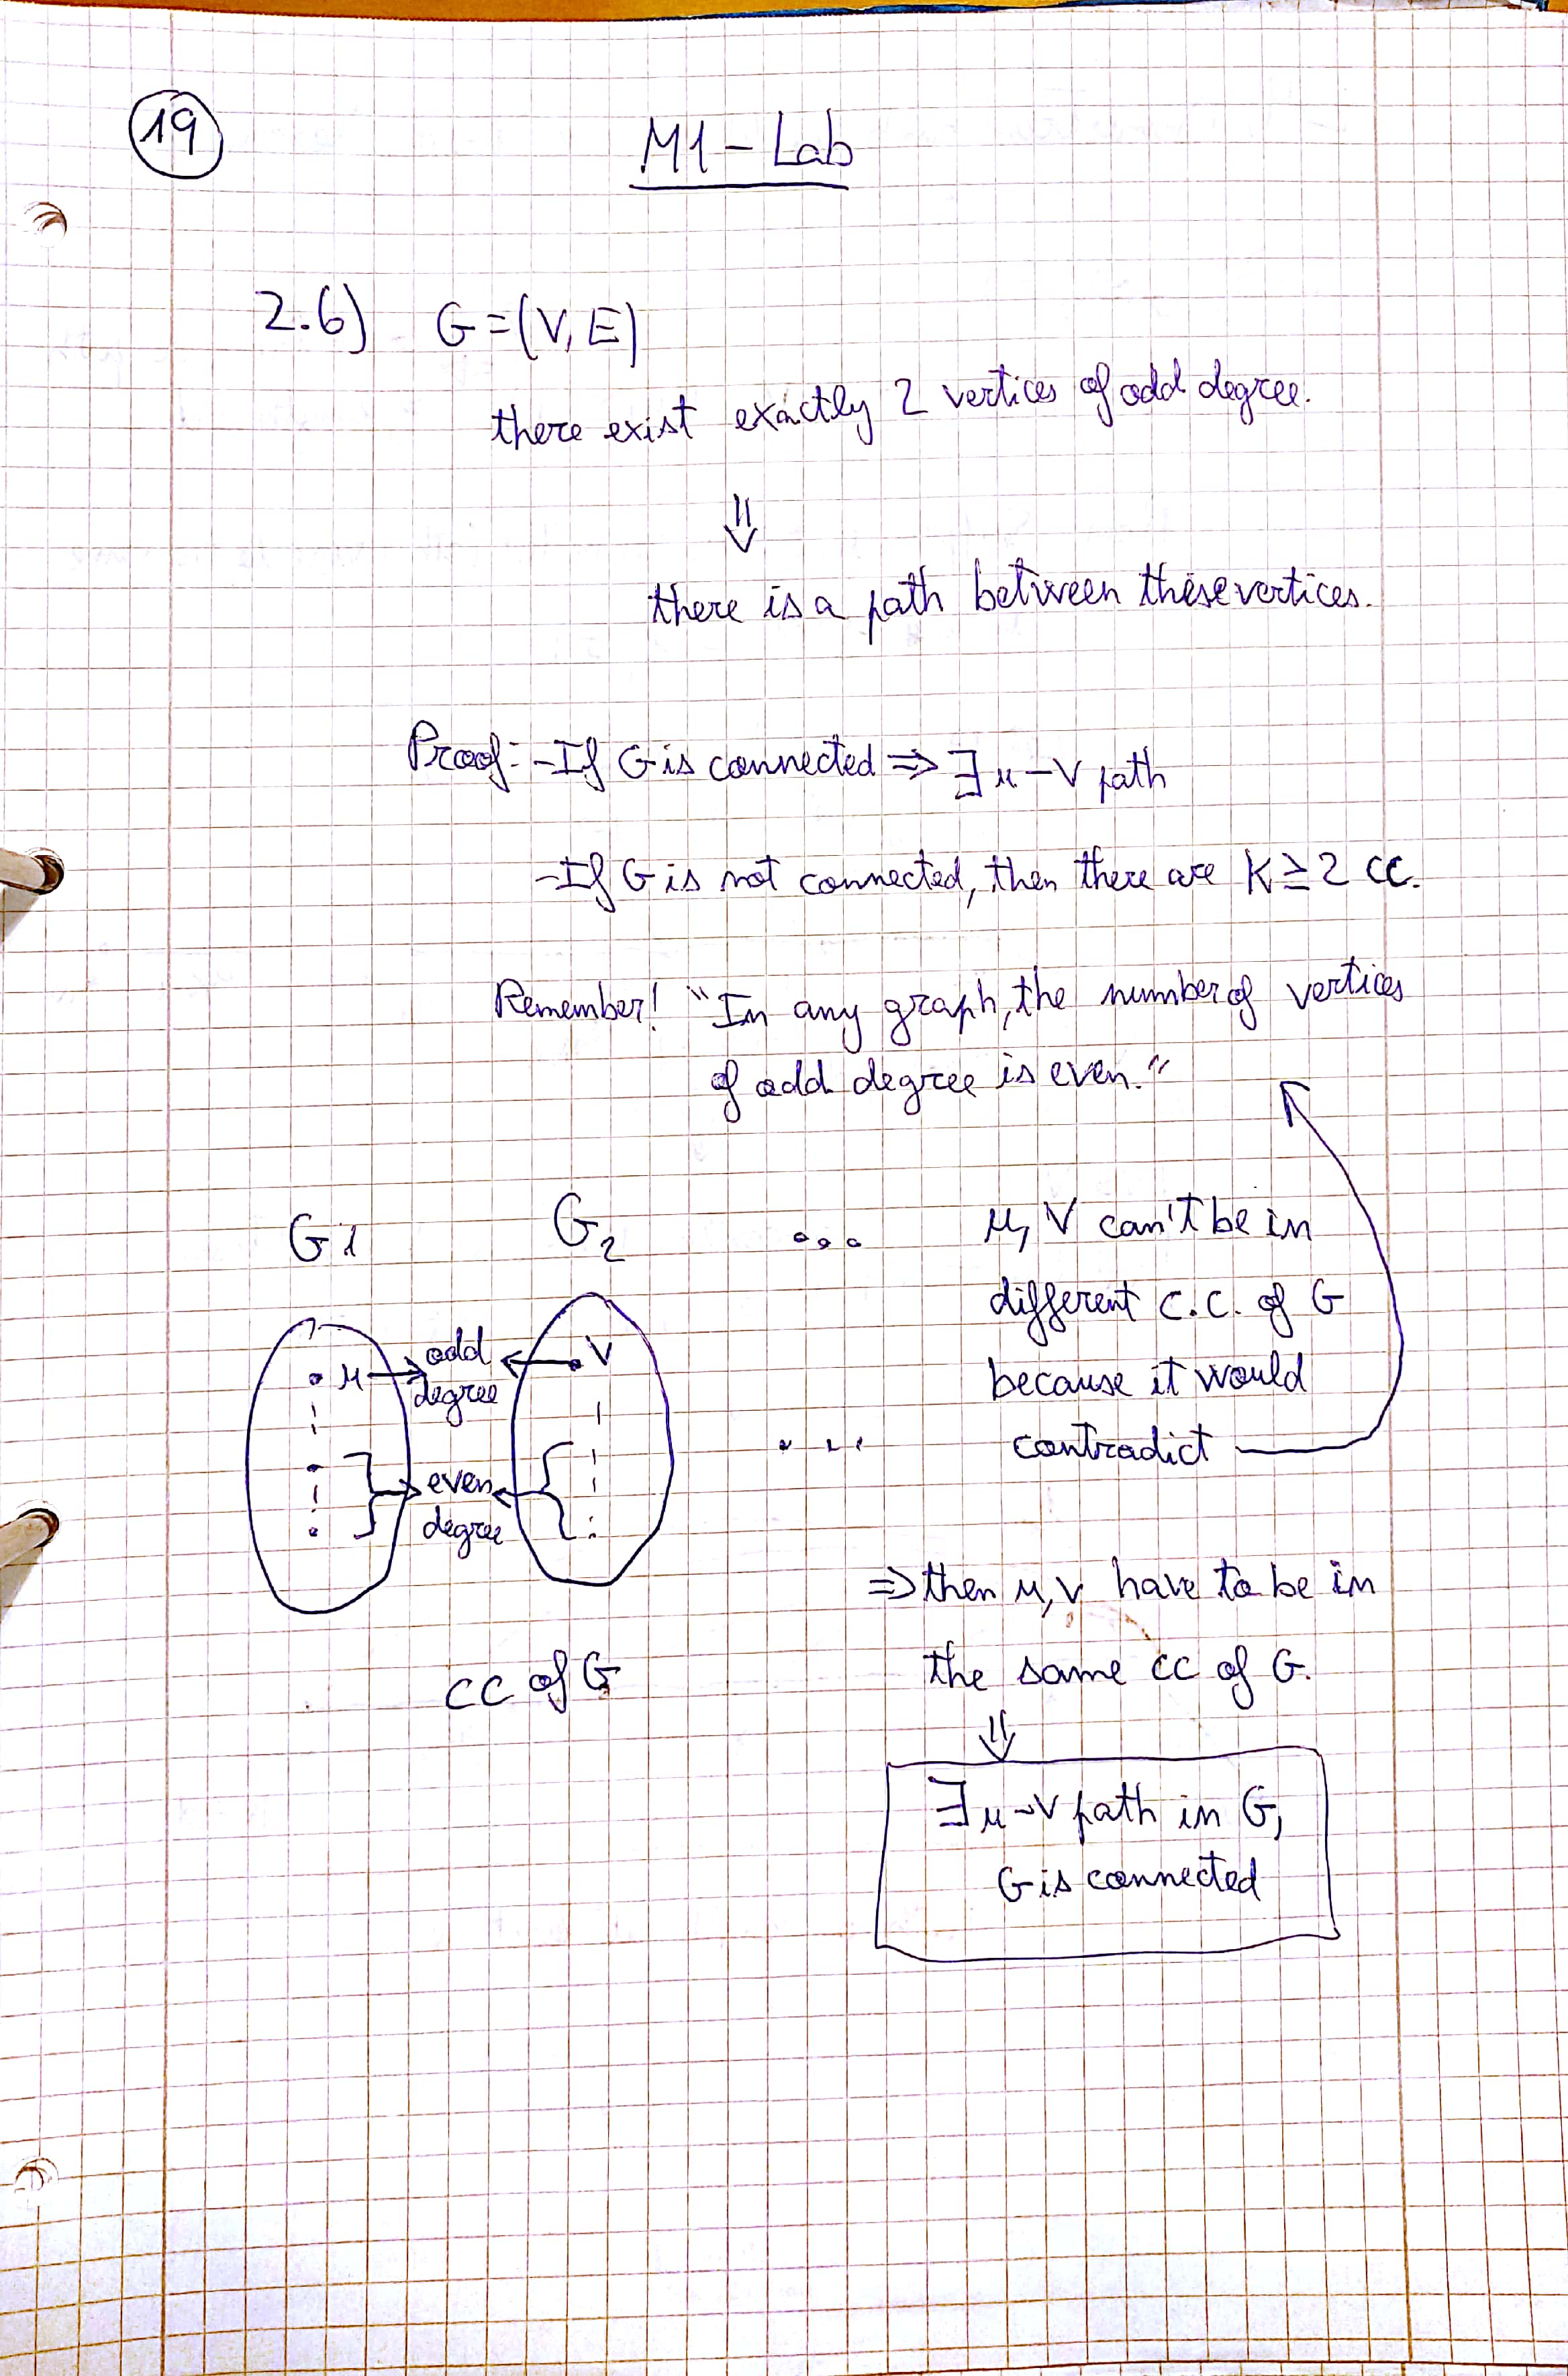 19
M1 - Lab
2.6) G=(V,E)
there exist exactly 2 vertices of odd degree.
⇓
there is a path between these vertices.
Proof: -If G is connected ⇒ ∃ u-v path
-If G is not connected, then there are K≥2 cc.
Remember! "In any graph, the number of vertices
of odd degree is even."
G1 G2 ...
u v
odd
degree
...
even
degree
cc of G
u, v can't be in
different c.c. of G
because it would
contradict
⇒ then u, v have to be in
the same cc of G.
⇓
∃ u-v path in G,
G is connected